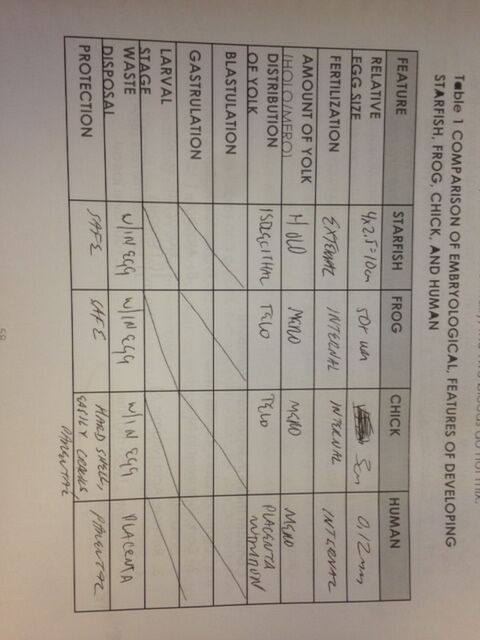 Table 1 COMPARISON OF EMBRYOLOGICAL, FEATURES OF DEVELOPING
STARFISH, FROG, CHICK, AND HUMAN
FEATURE STARFISH FROG CHICK HUMAN
RELATIVE EGG SIZE 4x2.5=10cm 3cm 0.12mm
FERTILIZATION EXTERNAL INTERNAL INTERNAL INTERNAL
AMOUNT OF YOLK (HOLO/MERO) HOLO MERO MERO MERO
DISTRIBUTION OF YOLK TELO TELO PLACENTA
BLASTULATION
GASTRULATION
LARVAL STAGE
WASTE DISPOSAL W/IN EGG W/IN EGG W/IN EGG PLACENTA
PROTECTION SAFE SAFE HARD SHELL, EASILY CRACKS PARENTAL PARENTAL